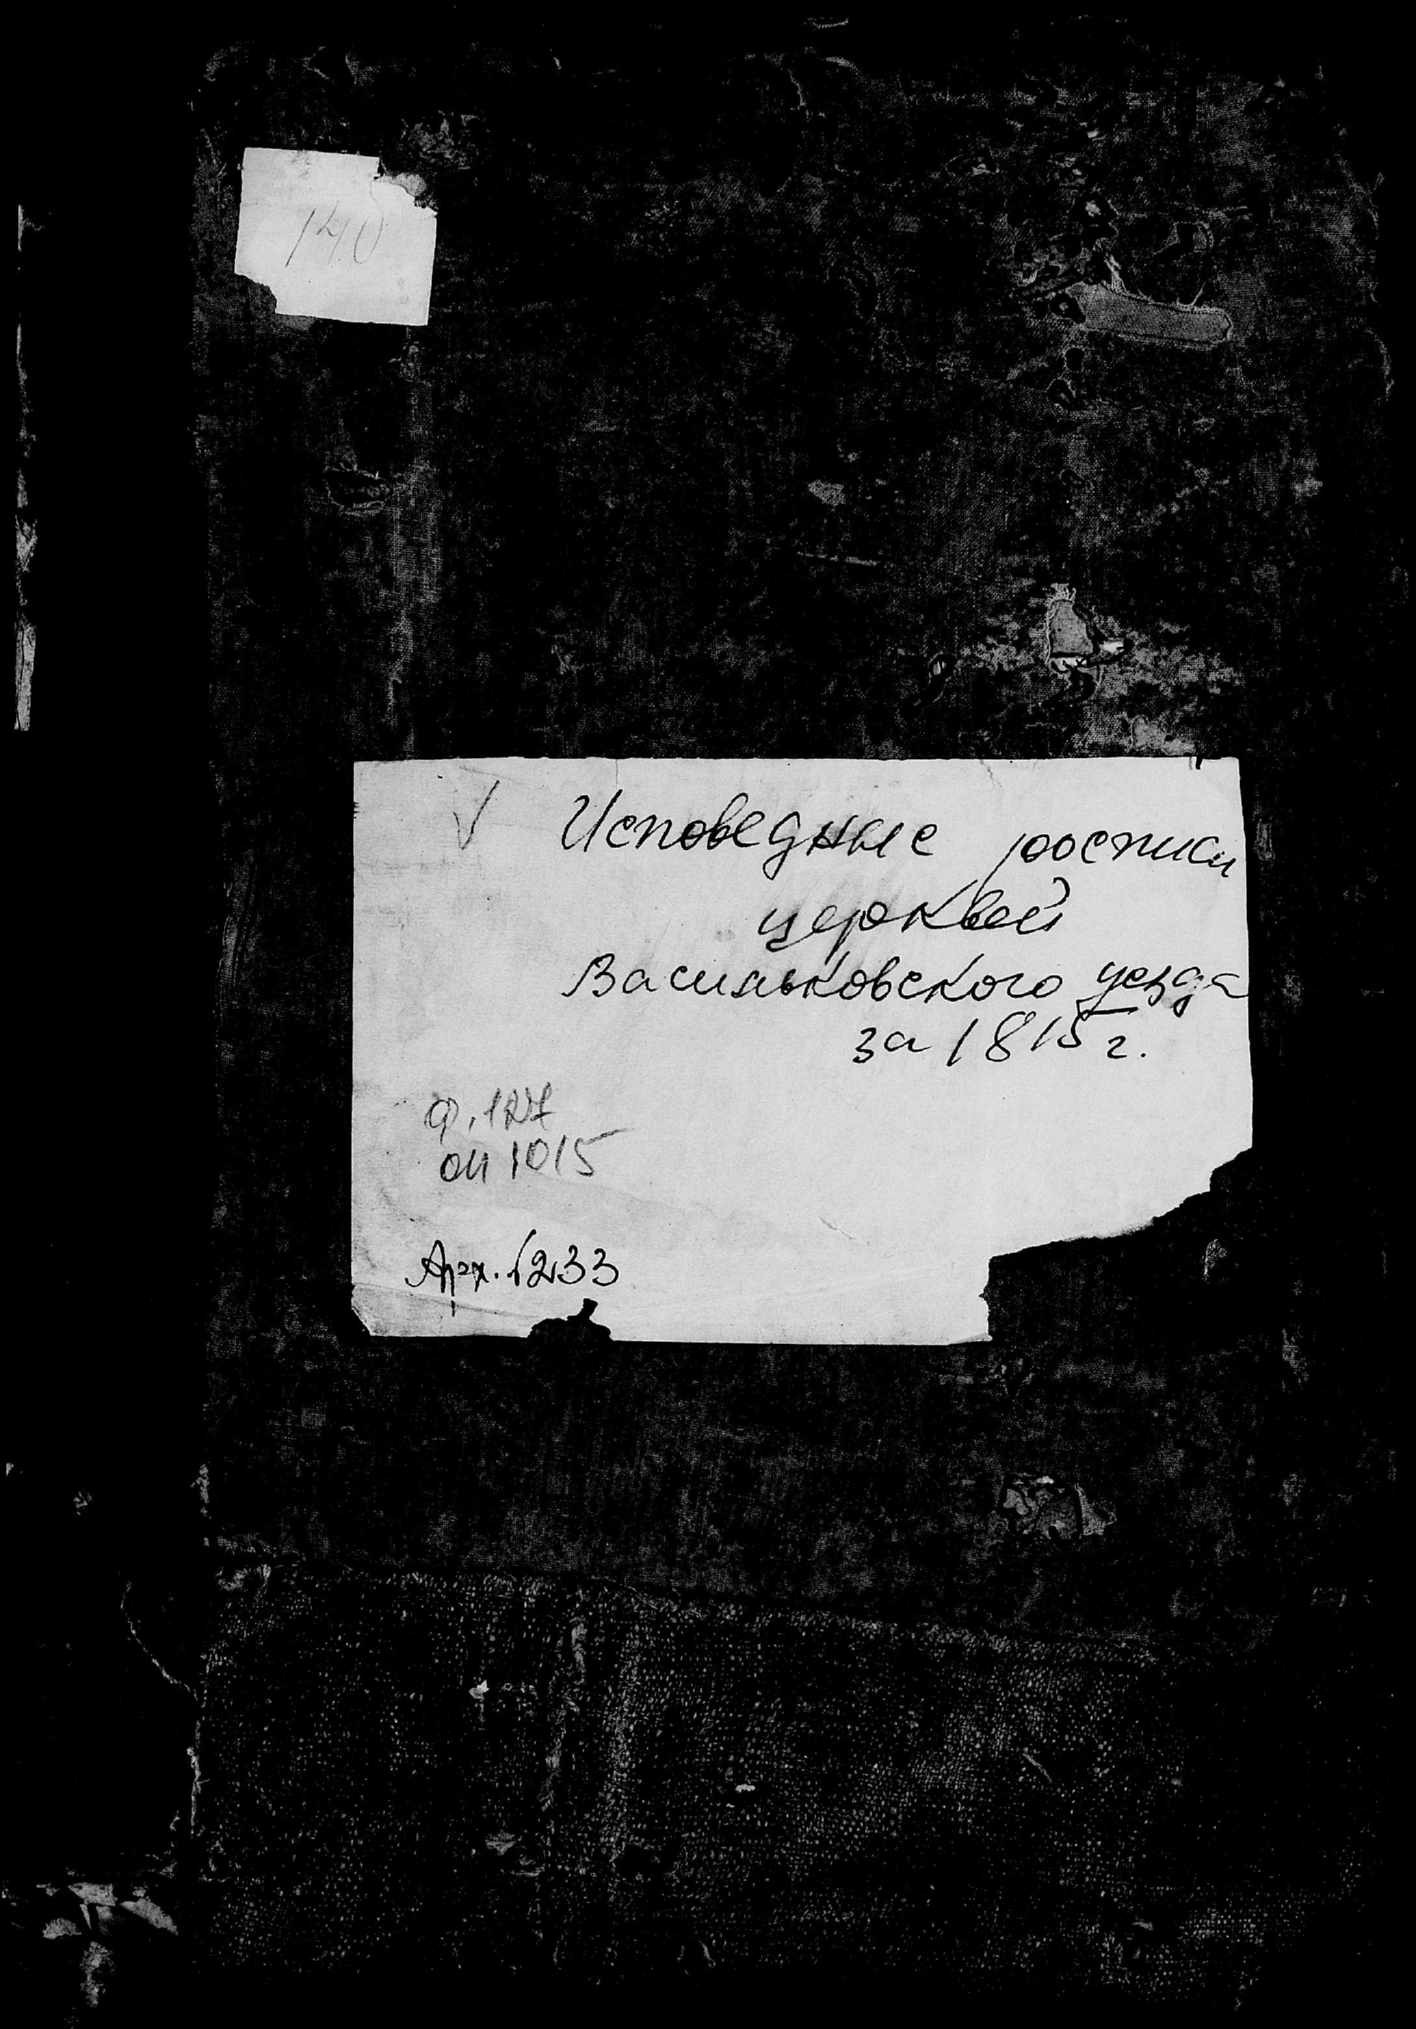 140
Исповедные росписи
церквей
Васильковского уезда
за 1815 г.
ф. 127
оп 1015
Арх. 1233